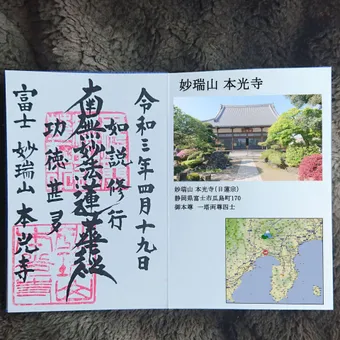 令和三年四月十九日
如説修行
南無妙法蓮華経
功徳甚多
富士 妙瑞山 本光寺
妙瑞山 本光寺
妙瑞山 本光寺(日蓮宗)
静岡県富士市瓜島町170
御本尊 一塔両尊四士